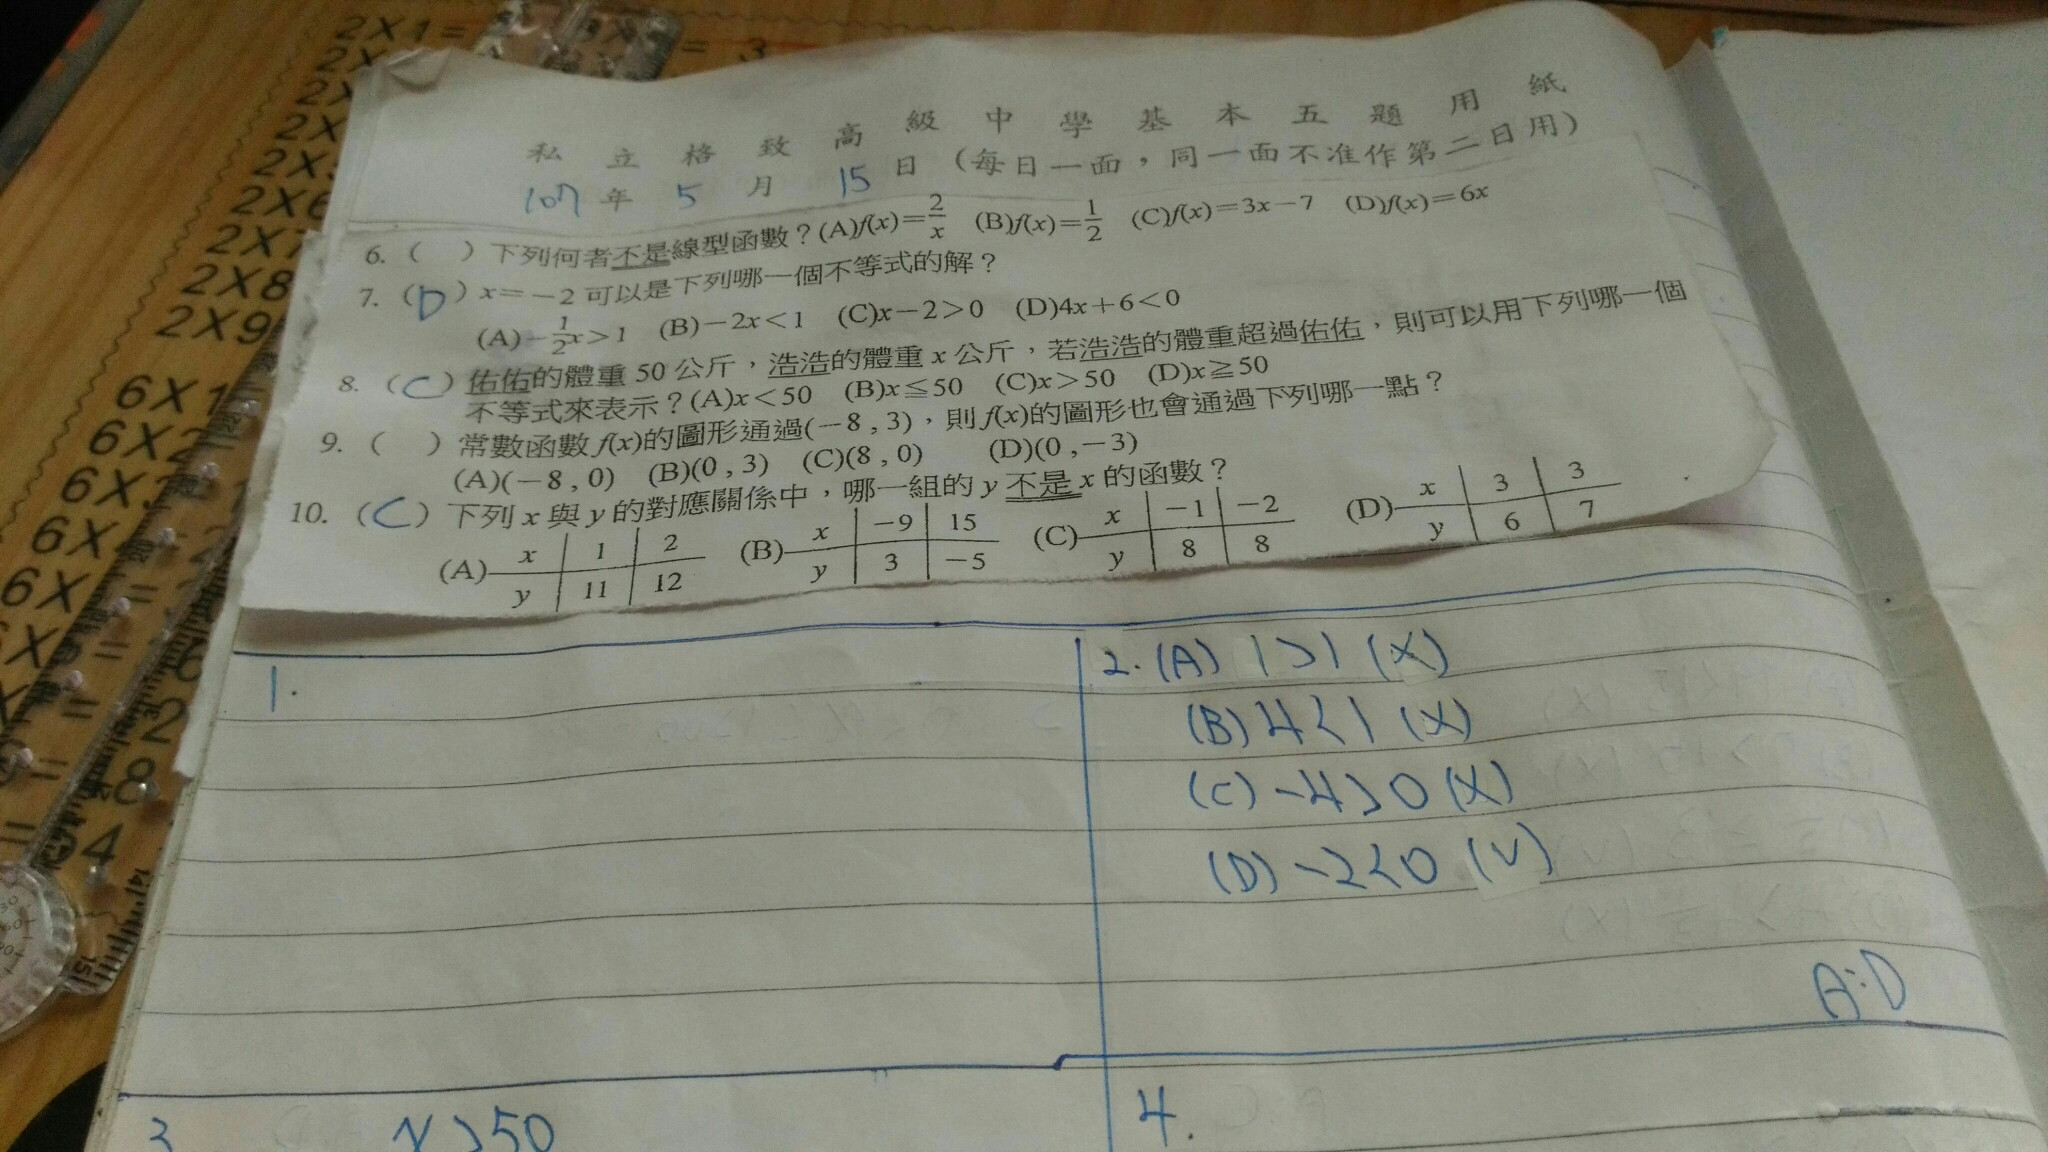 2X1=
3
2X
2X
2X
2X
2X6
2X7
2X8
2X9
6X1
6X2
6X3
6X
6X
私立格致高級中學基本五題用紙
107年5月15日(每日一面,同一面不准作第二日用)
6. ( ) 下列何者不是線型函數?(A)f(x)=2/x (B)f(x)=1/2 (C)f(x)=3x-7 (D)f(x)=6x
7. (D) x=-2可以是下列哪一個不等式的解?
(A)-1/2x>1 (B)-2x<1 (C)x-2>0 (D)4x+6<0
8. (C) 佑佑的體重50公斤,浩浩的體重x公斤,若浩浩的體重超過佑佑,則可以用下列哪一個
不等式來表示?(A)x<50 (B)x≦50 (C)x>50 (D)x≧50
9. ( ) 常數函數f(x)的圖形通過(-8,3),則f(x)的圖形也會通過下列哪一點?
(A)(-8,0) (B)(0,3) (C)(8,0) (D)(0,-3)
10. (C) 下列x與y的對應關係中,哪一組的y不是x的函數?
(A) x 1 2 (B) x -9 15 (C) x -1 -2 (D) x 3 3
y 11 12 y 3 -5 y 8 8 y 6 7
1.
2. (A) 1>1 (X)
(B) 4<1 (X)
(C) -4>0 (X)
(D) -2<0 (V)
A:D
3
x>50
4.